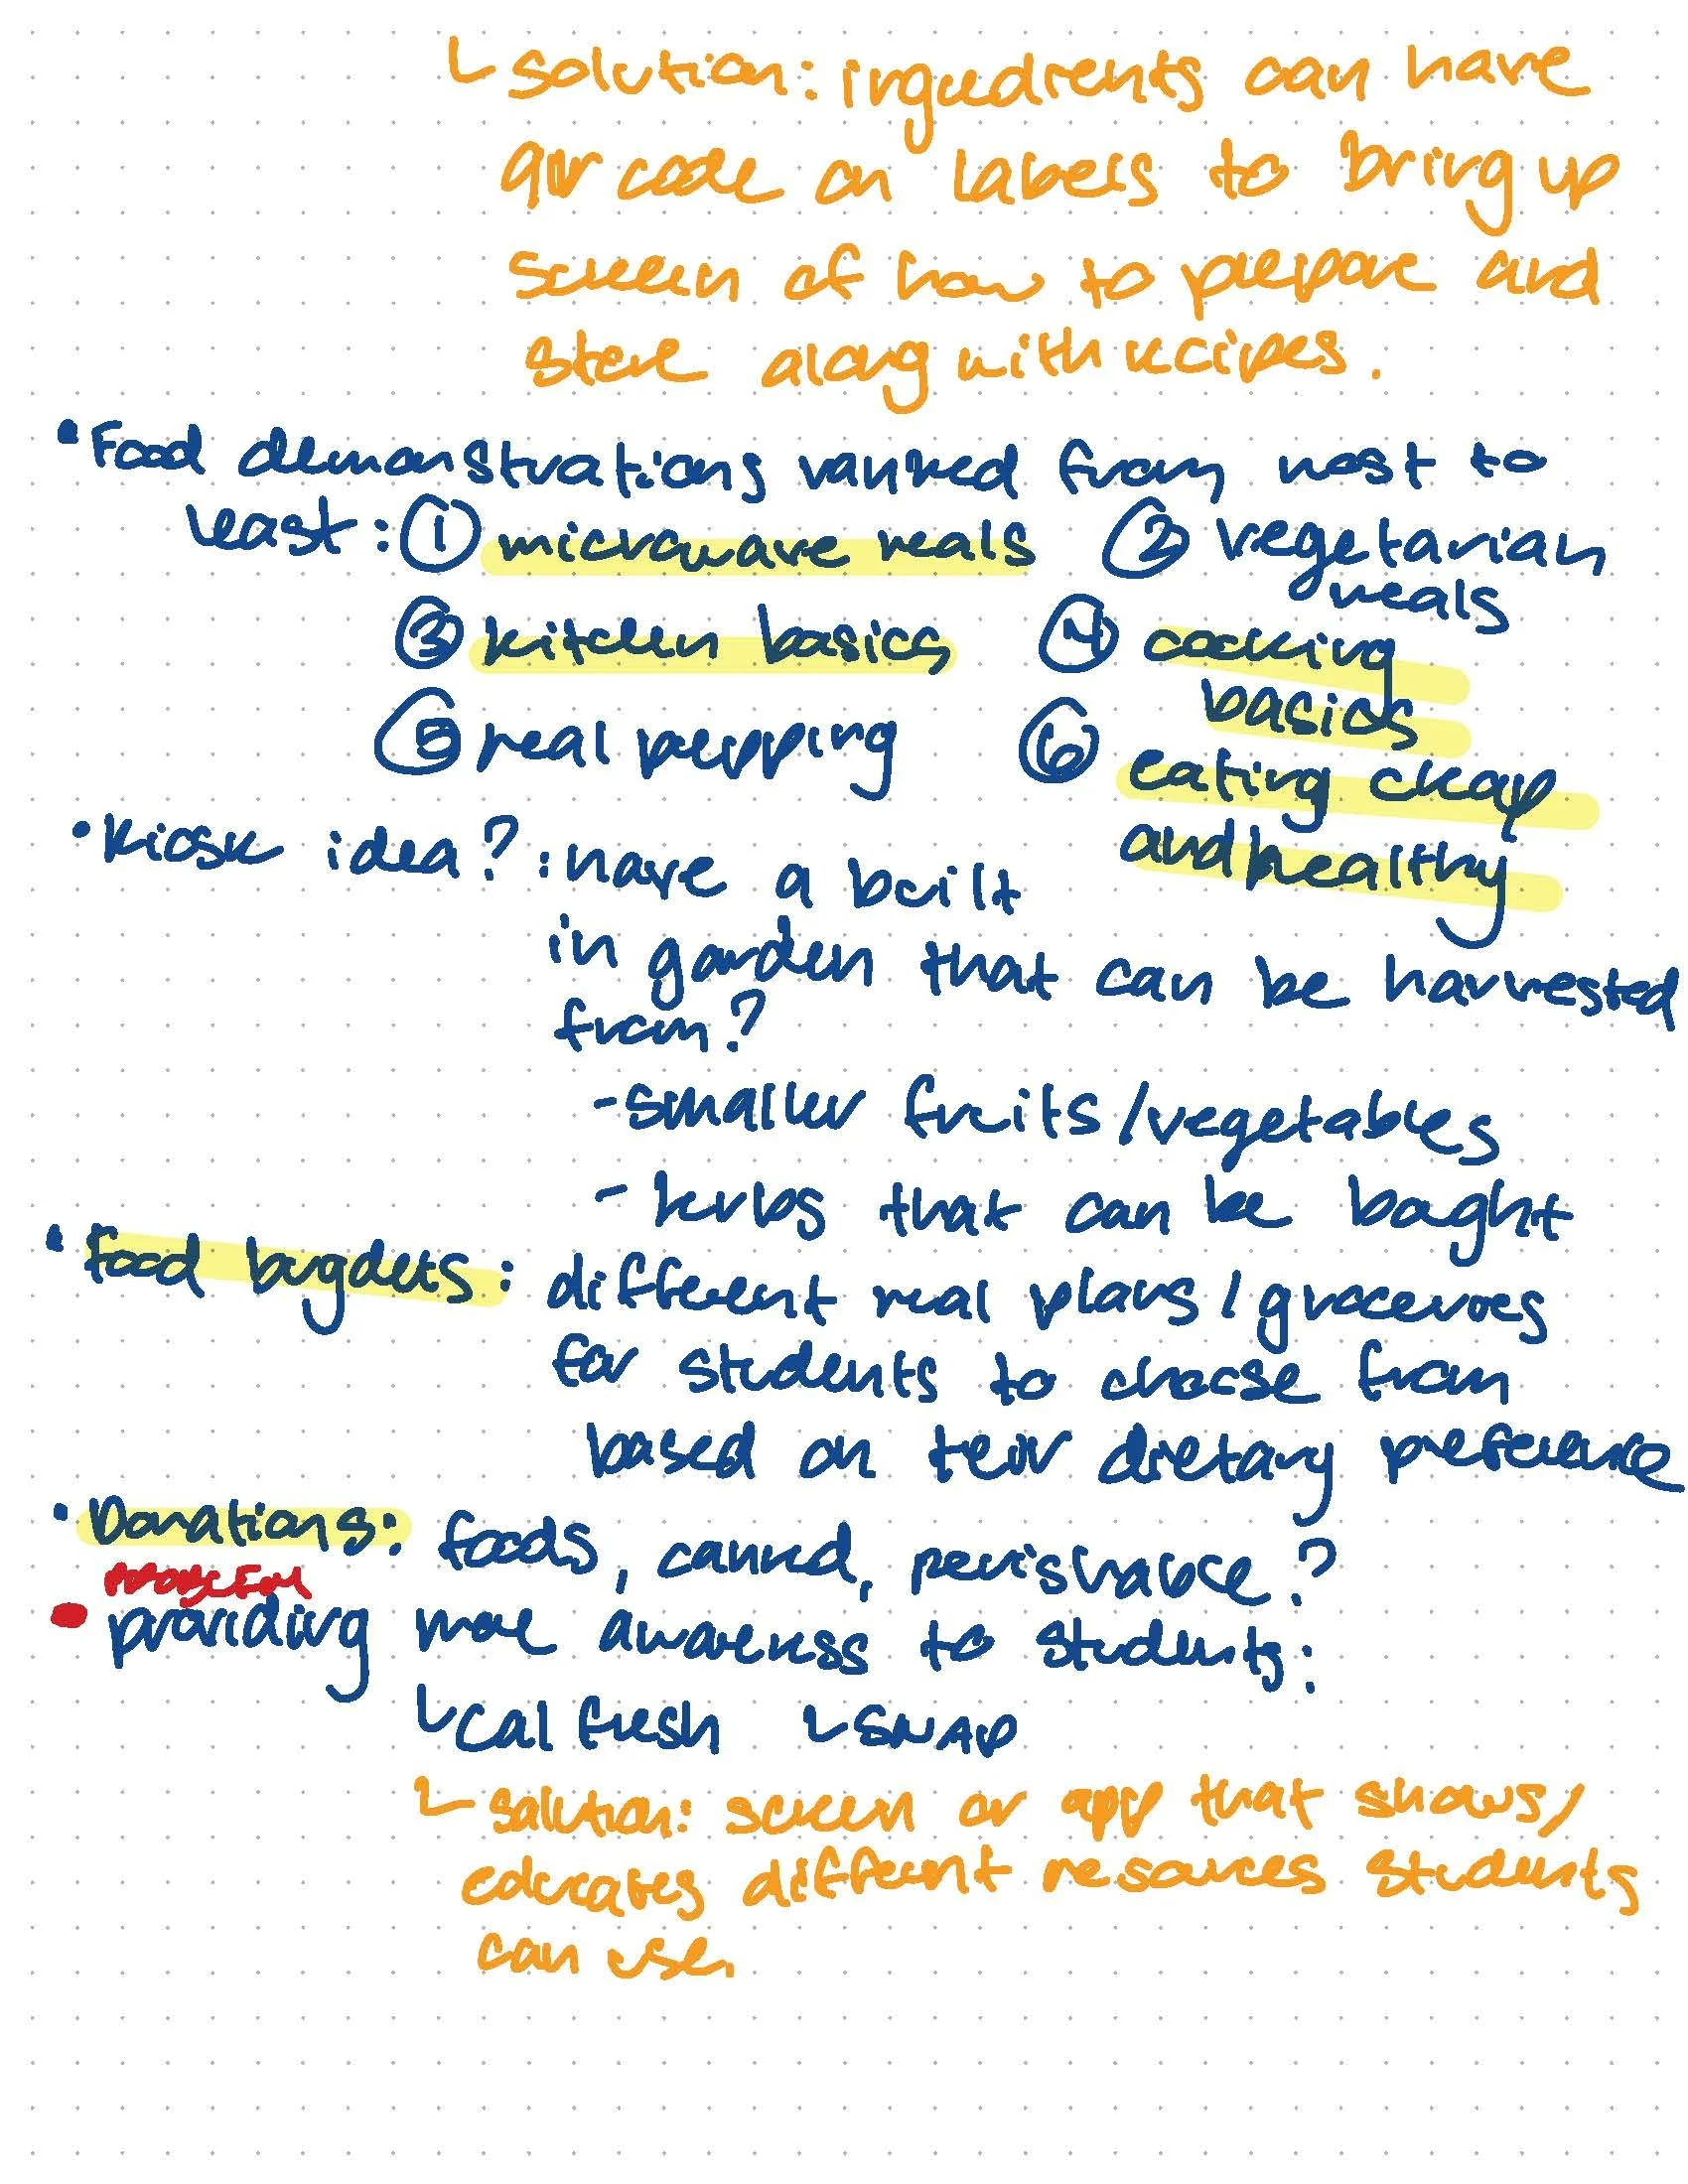 └ solution: ingredients can have
qr code on labels to bring up
screen of how to prepare and
store along with recipes.
• Food demonstrations ranked from most to
least: ① microwave meals ② vegetarian
meals
③ kitchen basics ④ cooking
basics
⑤ meal prepping ⑥ eating cheap
and healthy
• Kiosk idea? : have a built
in garden that can be harvested
from?
- smaller fruits / vegetables
- herbs that can be bought
• Food bugdets: different meal plans / groceries
for students to choose from
based on teir dietary preference
• Donations: foods, canned, perishable?
PROBLEM
• providing more awareness to students:
└ Cal fresh └ SNAP
└ solution: screen or app that shows/
educates different resources students
can use.